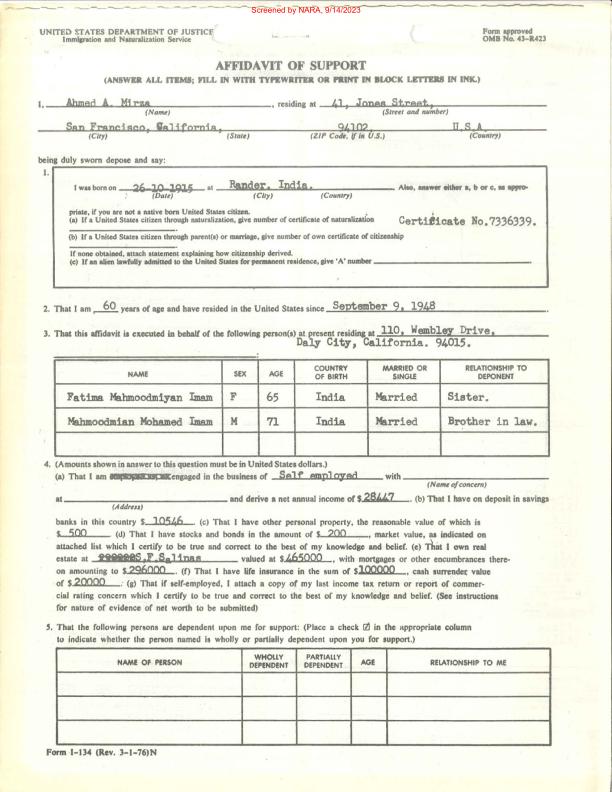 Screened by NARA, 9/14/2023
UNITED STATES DEPARTMENT OF JUSTICE
Immigration and Naturalization Service
Form approved
OMB No. 43-R423
AFFIDAVIT OF SUPPORT
(ANSWER ALL ITEMS; FILL IN WITH TYPEWRITER OR PRINT IN BLOCK LETTERS IN INK.)
I, Ahmed A. Mirza, residing at 41, Jones Street,
(Name) (Street and number)
San Francisco, California, 94102, U.S.A
(City) (State) (ZIP Code, if in U.S.) (Country)
being duly sworn depose and say:
1.
I was born on 26-10-1915 at Rander, India. Also, answer either a, b or c, as appro-
(Date) (City) (Country)
priate, if you are not a native born United States citizen.
(a) If a United States citizen through naturalization, give number of certificate of naturalization Certificate No.7336339.
(b) If a United States citizen through parent(s) or marriage, give number of own certificate of citizenship
If none obtained, attach statement explaining how citizenship derived.
(c) If an alien lawfully admitted to the United States for permanent residence, give 'A' number
2. That I am 60 years of age and have resided in the United States since September 9, 1948
3. That this affidavit is executed in behalf of the following person(s) at present residing at 110, Wembley Drive,
Daly City, California. 94015.
NAME SEX AGE COUNTRY OF BIRTH MARRIED OR SINGLE RELATIONSHIP TO DEPONENT
Fatima Mahmoodmiyan Imam F 65 India Married Sister.
Mahmoodmian Mohamed Imam M 71 India Married Brother in law.
4. (Amounts shown in answer to this question must be in United States dollars.)
(a) That I am engaged in the business of Self employed with
(Name of concern)
at and derive a net annual income of $28447. (b) That I have on deposit in savings
(Address)
banks in this country $ 10546 (c) That I have other personal property, the reasonable value of which is
$ 500 (d) That I have stocks and bonds in the amount of $ 200, market value, as indicated on
attached list which I certify to be true and correct to the best of my knowledge and belief. (e) That I own real
estate at S,F,Salinas valued at $465000, with mortgages or other encumbrances there-
on amounting to $296000. (f) That I have life insurance in the sum of $100000, cash surrender value
of $20000. (g) That if self-employed, I attach a copy of my last income tax return or report of commer-
cial rating concern which I certify to be true and correct to the best of my knowledge and belief. (See instructions
for nature of evidence of net worth to be submitted)
5. That the following persons are dependent upon me for support: (Place a check ☑ in the appropriate column
to indicate whether the person named is wholly or partially dependent upon you for support.)
NAME OF PERSON WHOLLY DEPENDENT PARTIALLY DEPENDENT AGE RELATIONSHIP TO ME
Form I-134 (Rev. 3-1-76)N